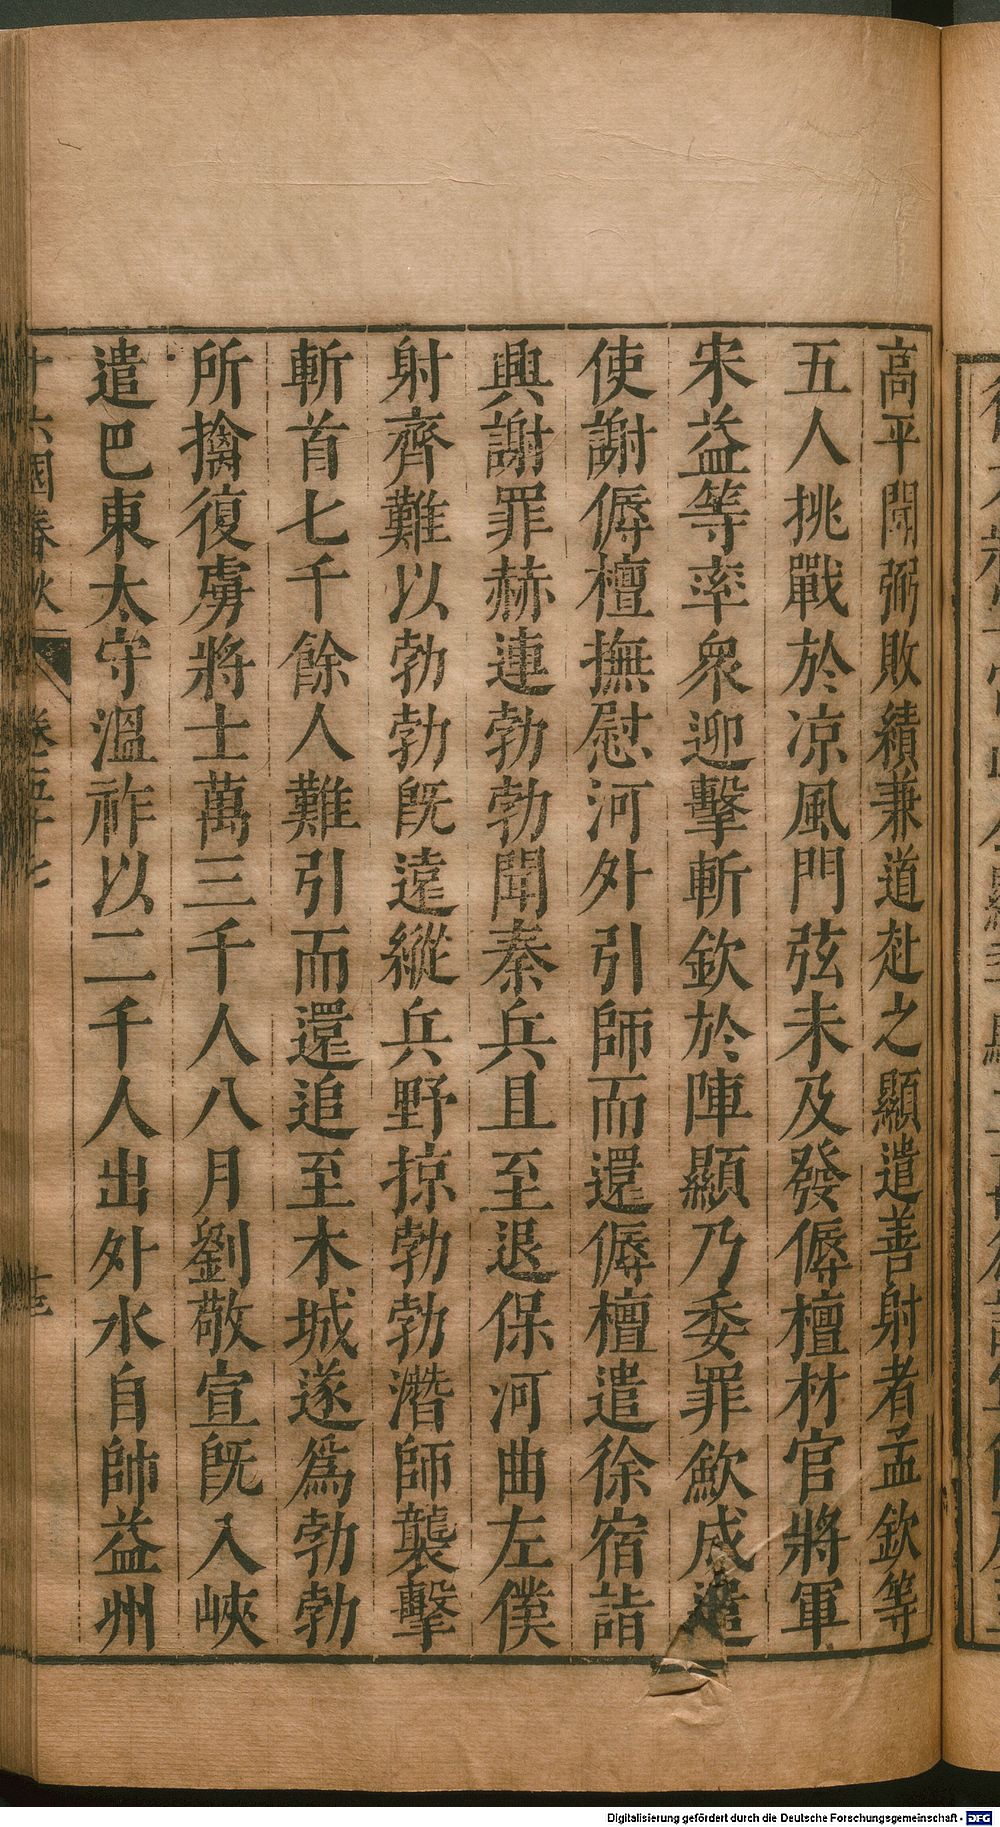 高平聞弼敗績兼道赴之顯遣善射者孟欽等
五人挑戰於凉風門弦未及發傉檀材官將軍
宋益等率衆迎擊斬欽於陣顯乃委罪歛成遣
使謝傉檀撫慰河外引師而還傉檀遣徐宿詣
興謝罪赫連勃勃聞秦兵且至退保河曲左僕
射齊難以勃勃旣遠縱兵野掠勃勃潛師襲擊
斬首七千餘人難引而還追至木城遂爲勃勃
所擒復虜將士萬三千人八月劉敬宣旣入峽
遣巴東太守溫祚以二千人出外水自帥益州
十六國春秋 卷五十七 十三
Digitalisierung gefördert durch die Deutsche Forschungsgemeinschaft - DFG